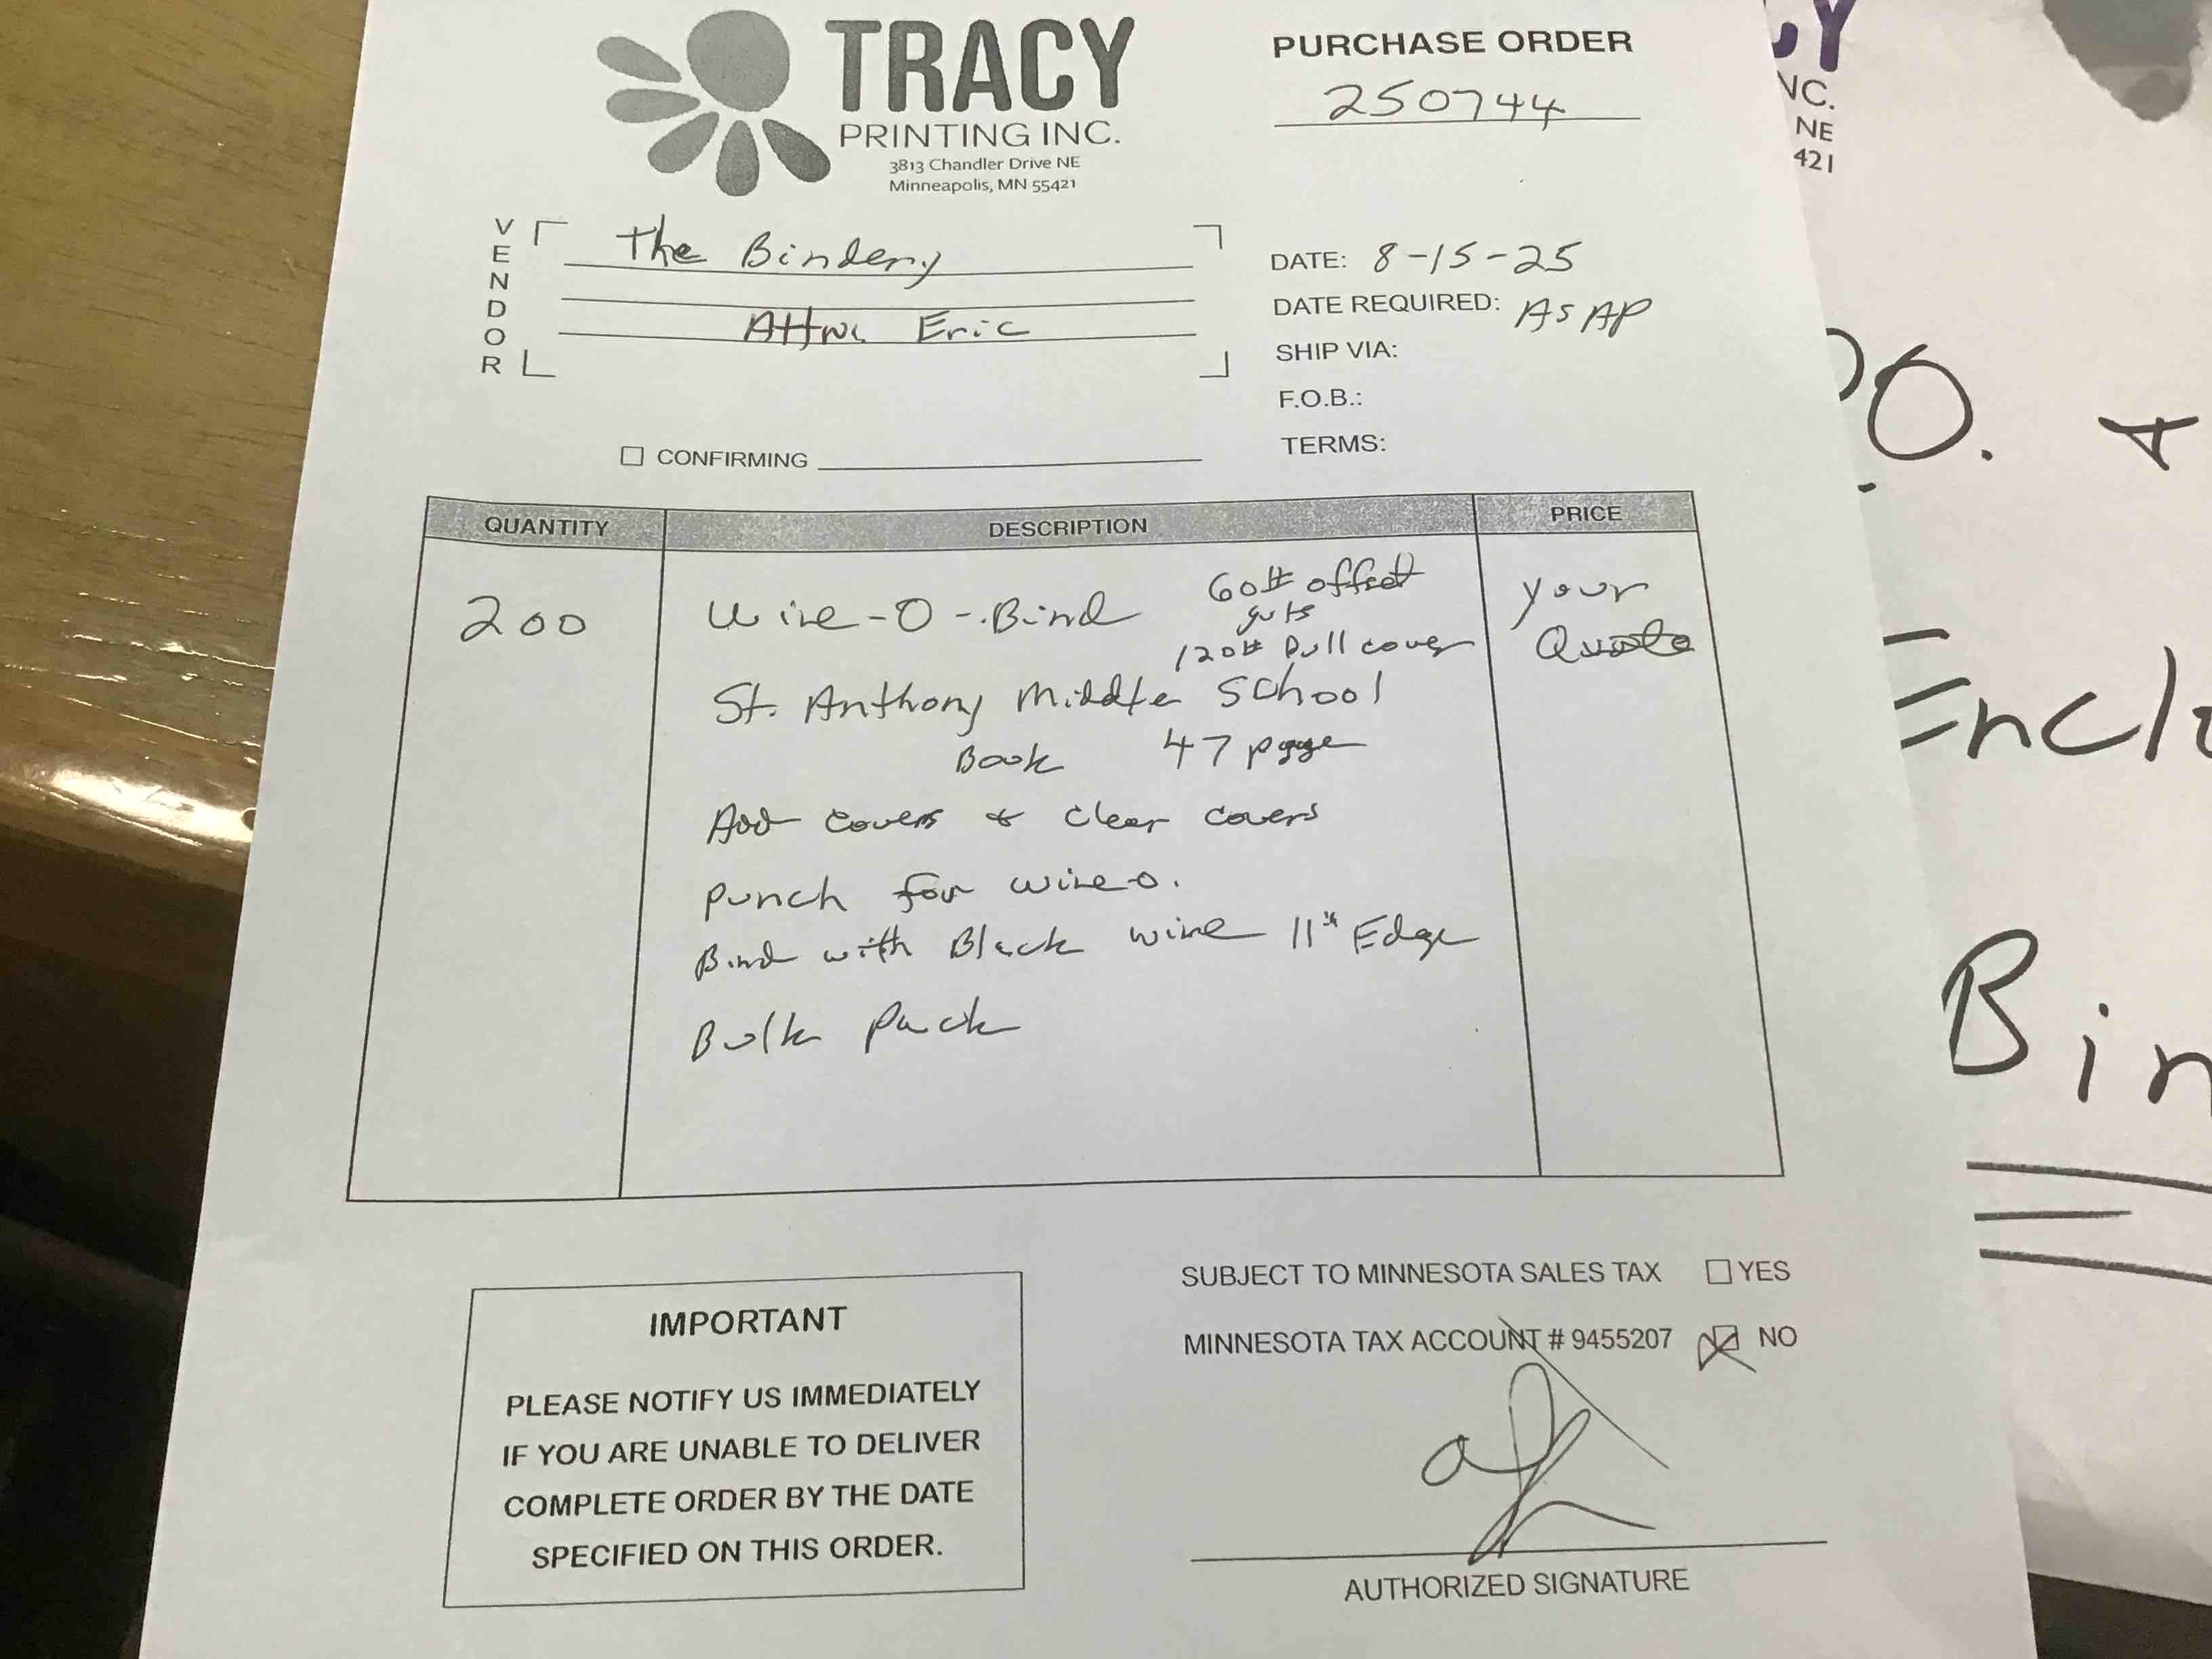 TRACY
PRINTING INC.
3813 Chandler Drive NE
Minneapolis, MN 55421
PURCHASE ORDER
250744
VENDOR
The Bindery
Attn: Eric
DATE: 8-15-25
DATE REQUIRED: ASAP
SHIP VIA:
F.O.B.:
TERMS:
CONFIRMING
QUANTITY DESCRIPTION PRICE
200 Wire-O-Bind 60# offset guts Your Quote
120# Dull cover
St. Anthony Middle School
Book 47 page
Add covers & clear covers
Punch for wire-o.
Bind with Black wire 11" Edge
Bulk Pack
IMPORTANT
PLEASE NOTIFY US IMMEDIATELY
IF YOU ARE UNABLE TO DELIVER
COMPLETE ORDER BY THE DATE
SPECIFIED ON THIS ORDER.
SUBJECT TO MINNESOTA SALES TAX YES
MINNESOTA TAX ACCOUNT # 9455207 NO
AUTHORIZED SIGNATURE
CY
NC.
NE
421
O. &
Encl
Bin